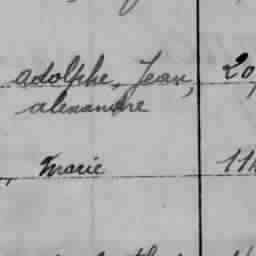 adolphe, Jean, 20
alexandre
Marie 11